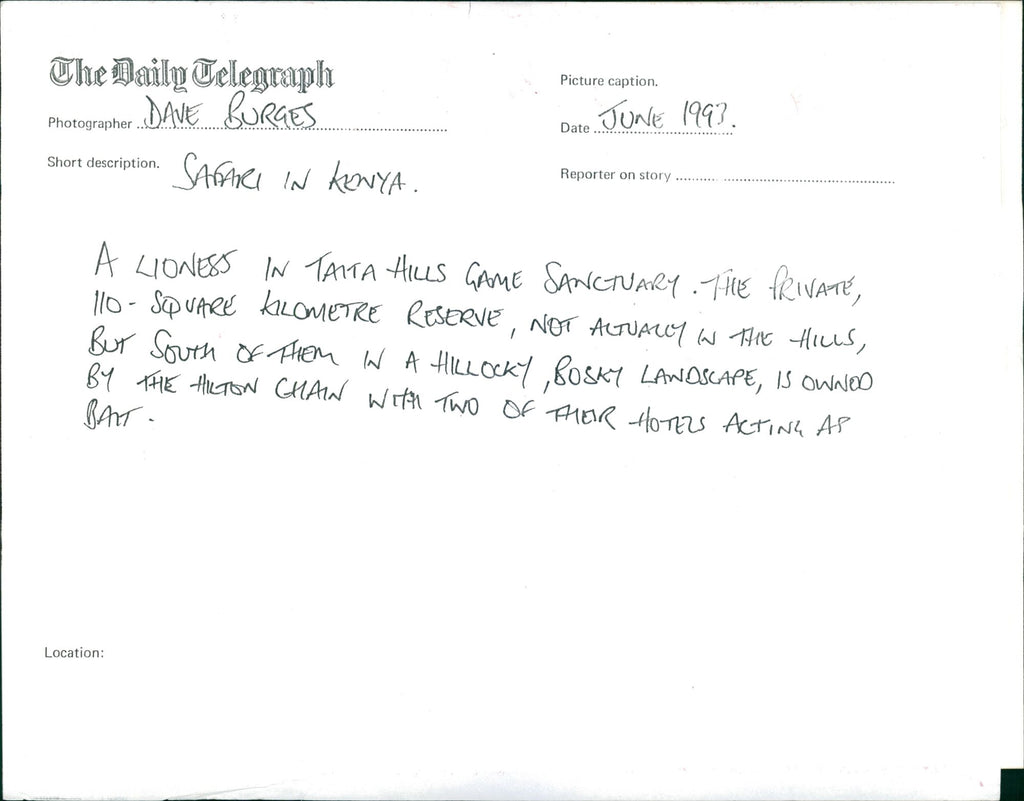 The Daily Telegraph
Picture caption.
Photographer DAVE BURGES
Date JUNE 1993.
Short description. SAFARI IN KENYA.
Reporter on story
A LIONESS IN TAITA HILLS GAME SANCTUARY. THE PRIVATE,
110-SQUARE KILOMETRE RESERVE, NOT ACTUALLY IN THE HILLS,
BUT SOUTH OF THEM IN A HILLOCKY, BOSKY LANDSCAPE, IS OWNED
BY THE HILTON CHAIN WITH TWO OF THEIR HOTELS ACTING AS
BAIT.
Location: